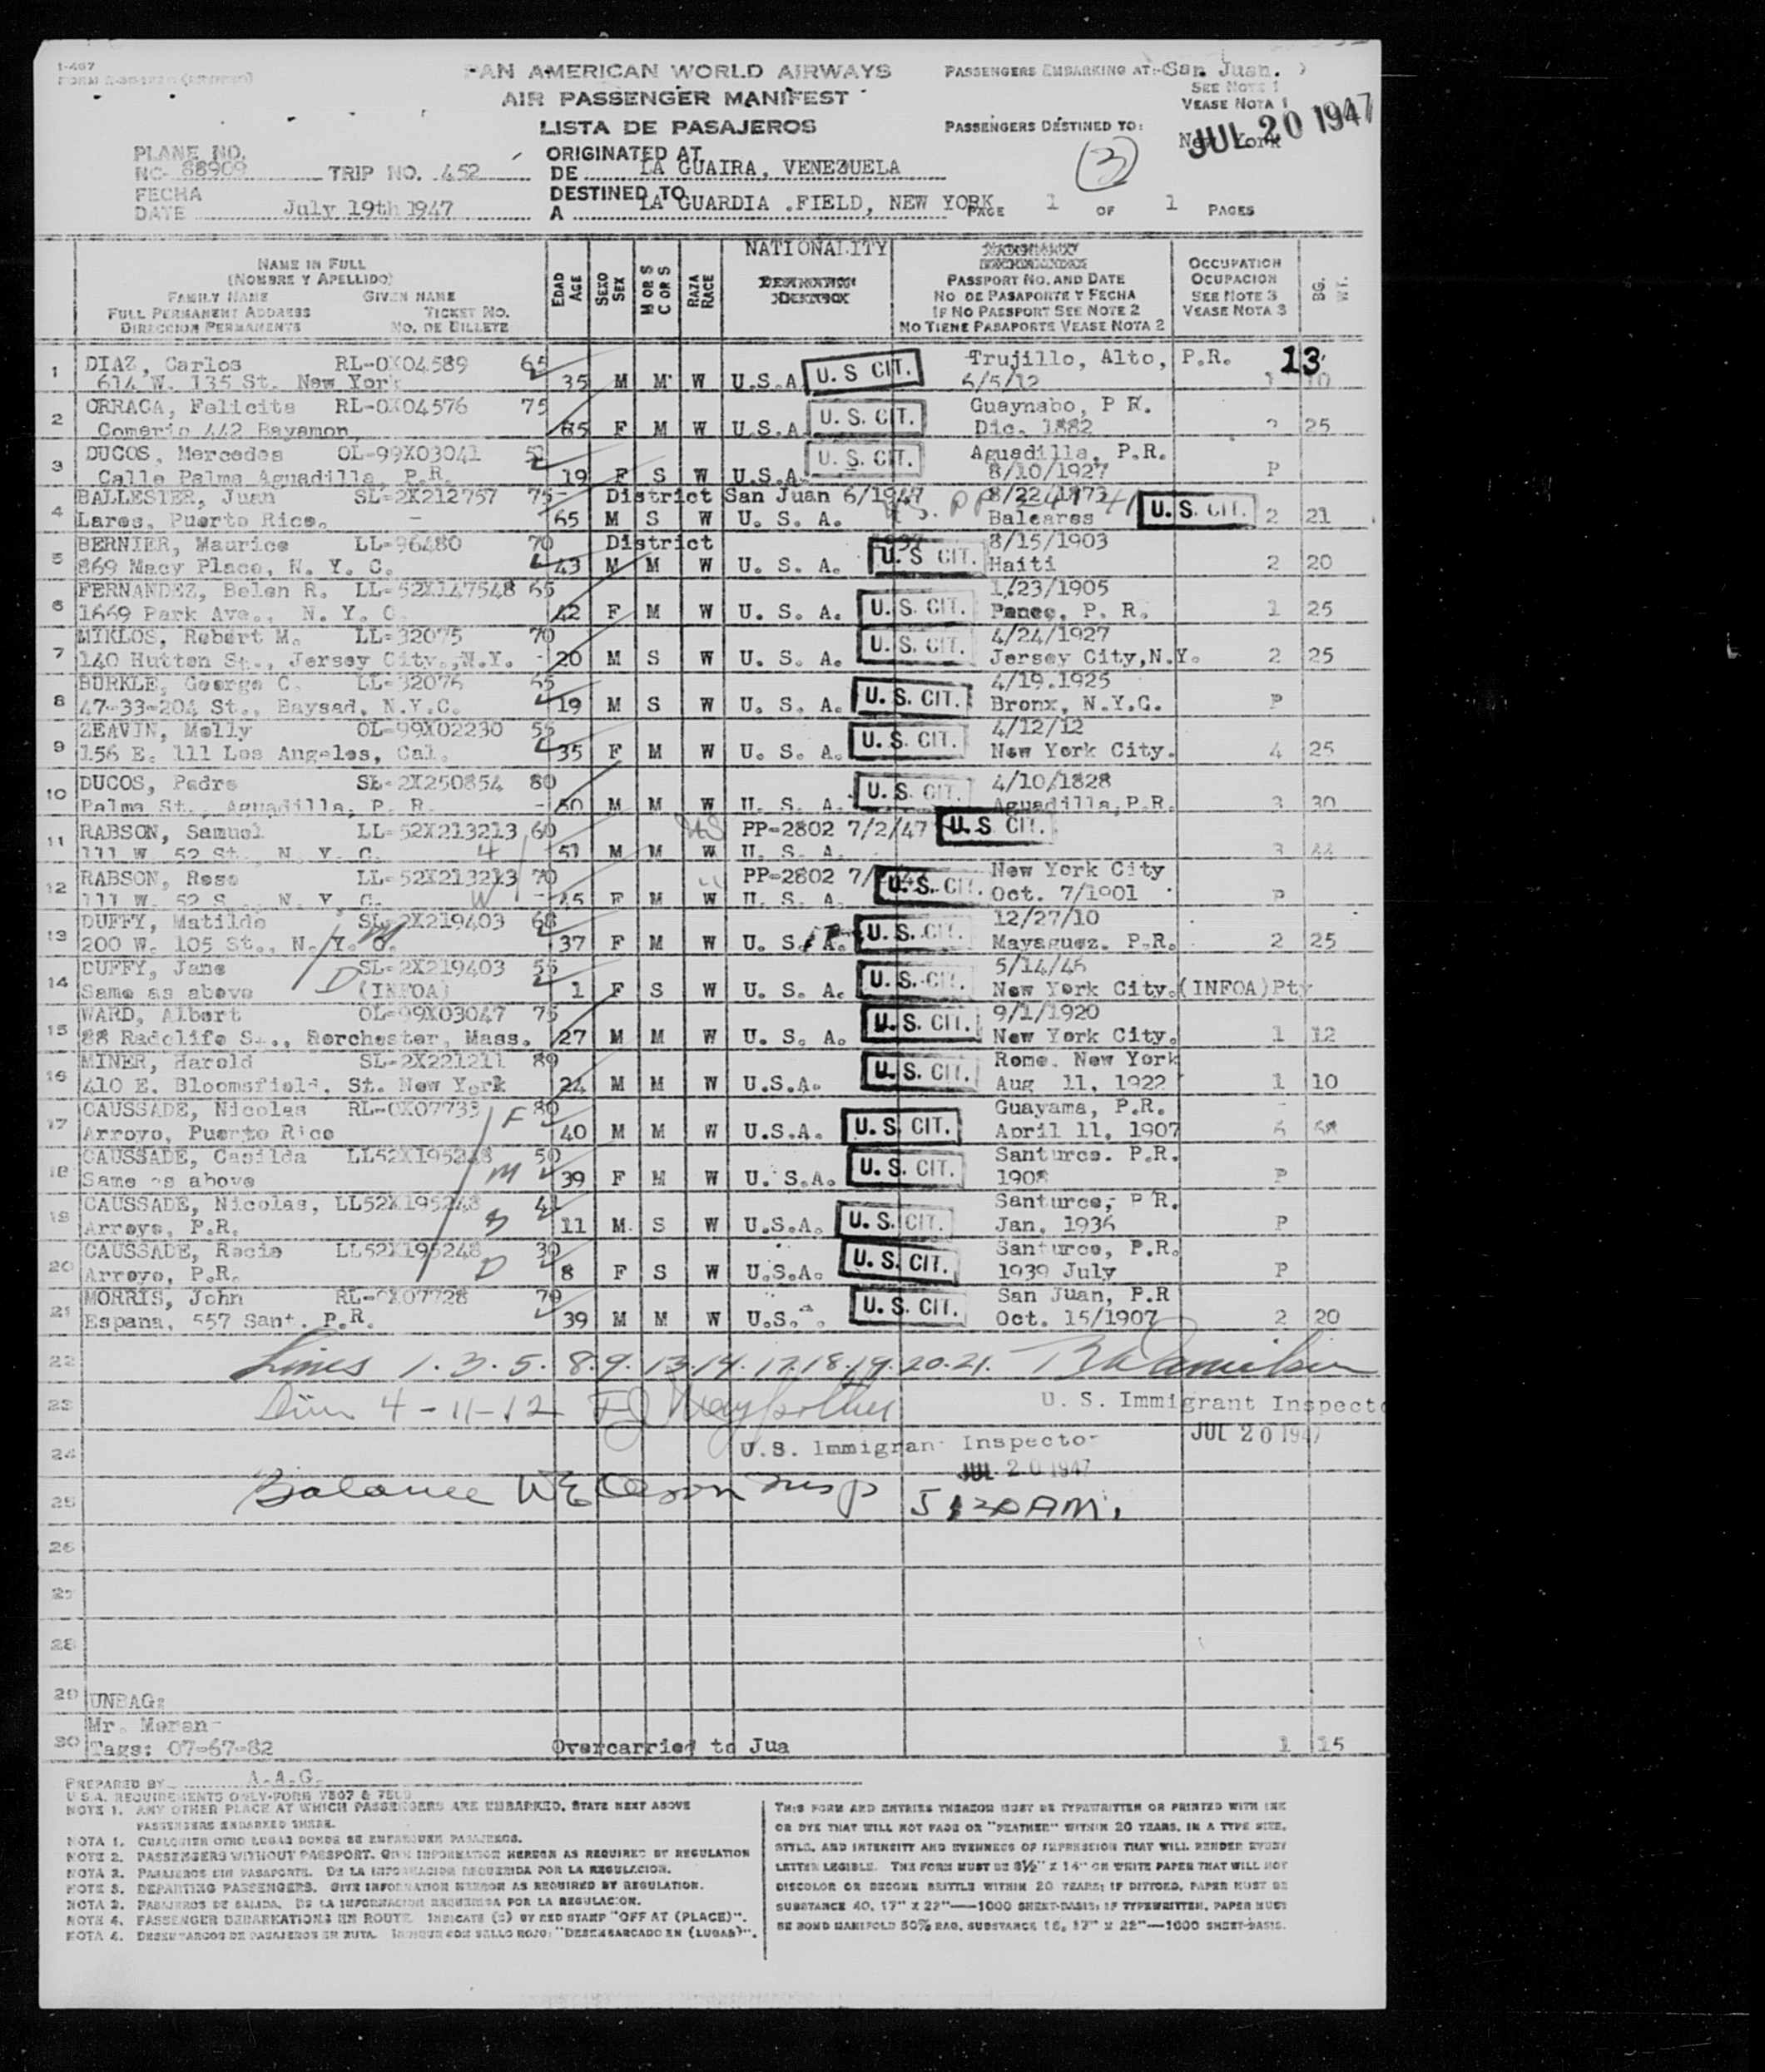 I-467
PAN AMERICAN WORLD AIRWAYS
AIR PASSENGER MANIFEST
LISTA DE PASAJEROS
PASSENGERS EMBARKING AT:-San Juan.
SEE NOTE 1
VEASE NOTA 1
PASSENGERS DESTINED TO:
New York
JUL 20 1947
(3)
PLANE NO.
NC- 88909 TRIP NO. 452
ORIGINATED AT
DE LA GUAIRA, VENEZUELA
FECHA
DATE July 19th 1947
DESTINED TO
A LA GUARDIA .FIELD, NEW YORK
PAGE 1 OF 1 PAGES
NAME IN FULL
(NOMBRE Y APELLIDO)
FAMILY NAME GIVEN NAME
FULL PERMANENT ADDRESS TICKET NO.
DIRECCION PERMANENTE NO. DE BILLETE
EDAD AGE
SEXO SEX
M OR S C OR S
RAZA RACE
NATIONALITY
PASSPORT NO. AND DATE
NO DE PASAPORTE Y FECHA
IF NO PASSPORT SEE NOTE 2
NO TIENE PASAPORTE VEASE NOTA 2
OCCUPATION
OCUPACION
SEE NOTE 3
VEASE NOTA 3
BG. WT.
1 DIAZ, Carlos RL-0X04589 65 Trujillo, Alto, P.R. 13
614 W. 135 St. New York 35 M M W U.S.A U. S CIT. 6/5/12 1 10
2 ORRACA, Felicita RL-0X04576 75 U. S. CIT. Guaynabo, P R.
Comerio 442 Bayamon 65 F M W U.S.A Dic. 1882 2 25
3 DUCOS, Mercedes OL-99X03041 52 U. S. CIT. Aguadilla, P.R.
Calle Palma Aguadilla, P.R. 19 F S W U.S.A. 8/10/1927 P
4 BALLESTER, Juan SL-2X212757 75- District San Juan 6/1947 8/22/1873
Lares, Puerto Rico. 65 M S W U. S. A. Baleares U. S. CIT. 2 21
5 BERNIER, Maurice LL-96480 70 District 8/15/1903
869 Macy Place, N. Y. C. 43 M M W U. S. A. U. S CIT. Haiti 2 20
6 FERNANDEZ, Belen R. LL-52X147548 65 1/23/1905
1669 Park Ave., N. Y. C. 42 F M W U. S. A. U. S. CIT. Ponce, P. R. 1 25
7 MIKLOS, Robert M. LL-32075 70 U. S. CIT. 4/24/1927
140 Hutton St., Jersey City.,N.Y. 20 M S W U. S. A. Jersey City,N.Y. 2 25
8 BURKLE, George C. LL-32076 65 4/19.1925
47-33-204 St., Baysad, N.Y.C. 19 M S W U. S. A. U. S. CIT. Bronx, N.Y.C. P
9 ZEAVIN, Molly OL-99X02230 55 4/12/12
156 E. 111 Los Angeles, Cal. 35 F M W U. S. A. U. S. CIT. New York City. 4 25
10 DUCOS, Pedro SL-2X250854 80 U. S. CIT. 4/10/1828
Palma St., Aguadilla, P. R. 60 M M W U. S. A. Aguadilla,P.R. 3 30
11 RABSON, Samuel LL-52X213213 60 US PP-2802 7/2/47 U. S CIT.
111 W. 52 St. N. Y. C. H 51 M M W U. S. A. 3 44
12 RABSON, Rose LL-52X213213 70 PP-2802 New York City
111 W. 52 S N. Y. C. W 45 F M W U. S. A. U. S. CIT. Oct. 7/1901 P
13 DUFFY, Matilde SL-2X219403 68 12/27/10
200 W. 105 St., N. Y. C. M 37 F M W U. S. A. U. S. CIT. Mayaguez. P.R. 2 25
14 DUFFY, Jane SL-2X219403 55 5/14/46
Same as above D (INFOA) 1 F S W U. S. A. U. S. CIT. New York City.(INFOA)Pty
15 WARD, Albert OL-99X03047 75 9/1/1920
88 Radclife St., Dorchester, Mass. 27 M M W U. S. A. U. S. CIT. New York City. 1 12
16 MINER, Harold SL-2X221211 89 Rome. New York
410 E. Bloomsfield, St. New York 24 M M W U.S.A. U. S. CIT. Aug 11, 1922 1 10
17 CAUSSADE, Nicolas RL-0X07733 F 80 Guayama, P.R.
Arroyo, Puerto Rico 40 M M W U.S.A. U. S CIT. April 11, 1907 6 68
18 CAUSSADE, Casilda LL52X195248 50 Santurce. P.R.
Same as above M 39 F M W U. S.A. U. S. CIT. 1908 P
19 CAUSSADE, Nicolas, LL52X195248 Santurce, P R.
Arroyo, P.R. S 11 M. S W U.S.A. U. S. CIT. Jan. 1936 P
20 CAUSSADE, Rocio LL52X195248 30 Santurce, P.R.
Arroyo, P.R. D 8 F S W U.S.A. U. S. CIT. 1939 July P
21 MORRIS, John RL-0X07728 70 San Juan, P.R
Espana, 557 Sant. P.R. 39 M M W U.S. U. S. CIT. Oct. 15/1907 2 20
22 Lines 1. 3. 5. 8. 9. 13. 14. 17. 18. 19. 20. 21.
23 4 - 11 - 12 U. S. Immigrant Inspecto
24 U.S. Immigran Inspector JUL 20 1947
JUL 20 1947
25 Balance Insp 5:20 AM.
26
27
28
29 UNBAG:
Mr. Moran-
30 Tags: 07-67-82 Overcarried to Jua 1 15
PREPARED BY A.A.G.
U.S.A. REQUIREMENTS ONLY-FORM 7507 & 7509
NOTE 1. ANY OTHER PLACE AT WHICH PASSENGERS ARE EMBARKED, STATE NEXT ABOVE
PASSENGERS EMBARKED THERE.
NOTA 1. CUALQUIER OTRO LUGAR DONDE SE EMBARQUEN PASAJEROS.
NOTE 2. PASSENGERS WITHOUT PASSPORT. GIVE INFORMATION HEREON AS REQUIRED BY REGULATION
NOTA 2. PASAJEROS SIN PASAPORTE. DE LA INFORMACION REQUERIDA POR LA REGULACION.
NOTE 3. DEPARTING PASSENGERS. GIVE INFORMATION HEREON AS REQUIRED BY REGULATION.
NOTA 3. PASAJEROS DE SALIDA. DE LA INFORMACION REQUERIDA POR LA REGULACION.
NOTE 4. PASSENGER DEBARKATIONS EN ROUTE. INDICATE (S) BY RED STAMP "OFF AT (PLACE)".
NOTA 4. DESEMBARCOS DE PASAJEROS EN RUTA. INDIQUE CON SELLO ROJO: "DESEMBARCADO EN (LUGAR)".
THIS FORM AND ENTRIES THEREON MUST BE TYPEWRITTEN OR PRINTED WITH INK
OR DYE THAT WILL NOT FADE OR "FEATHER" WITHIN 20 YEARS, IN A TYPE SIZE,
STYLE, AND INTENSITY AND EVENNESS OF IMPRESSION THAT WILL RENDER EVERY
LETTER LEGIBLE. THE FORM MUST BE 8½" X 14" ON WHITE PAPER THAT WILL NOT
DISCOLOR OR BECOME BRITTLE WITHIN 20 YEARS; IF DITTOED, PAPER MUST BE
SUBSTANCE 40, 17" X 22"—1000 SHEET-BASIS; IF TYPEWRITTEN, PAPER MUST
BE BOND MANIFOLD 50% RAG, SUBSTANCE 16, 17" X 22"—1000 SHEET-BASIS.